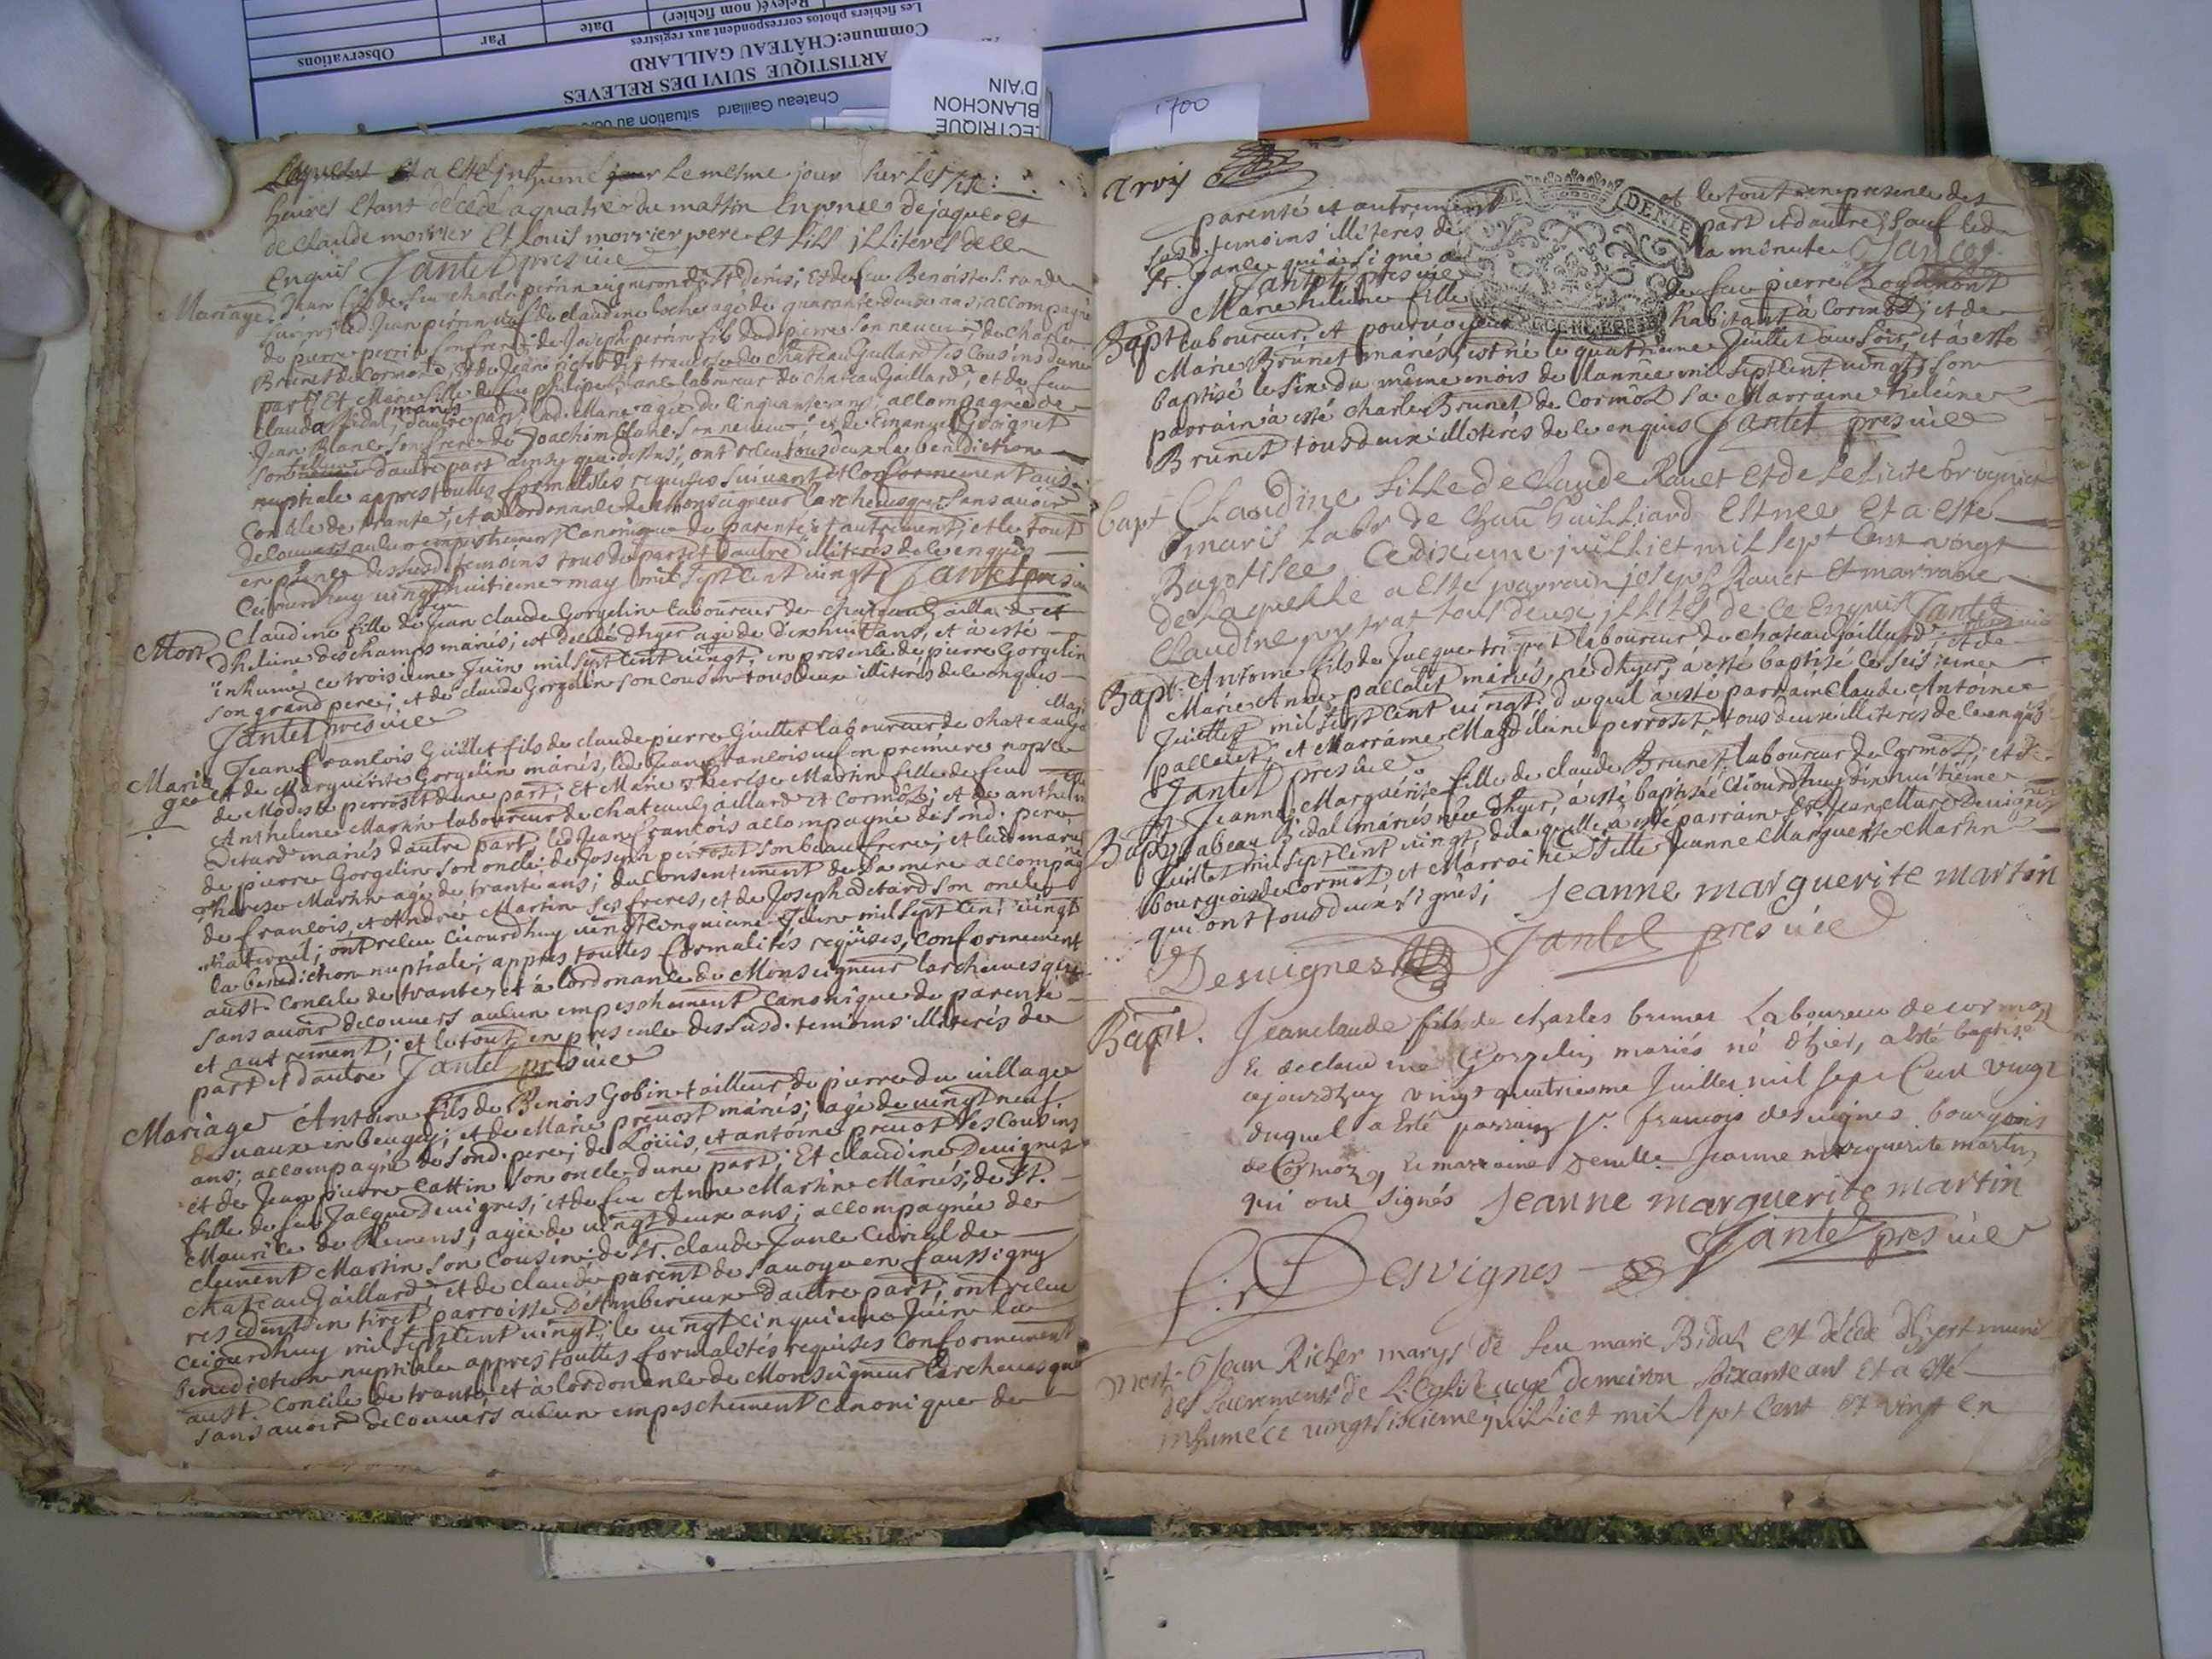 Observations
Par
Date
Relevé( nom fichier)
Les fichiers photos correspondent aux registres
Commune:CHÂTEAU GAILLARD
ARTISTIQUE SUIVI DES RELEVES
Chateau Gaillard situation au
D'AIN
BLANCHON
ECTRIQUE
1700
et a esté inhumé le mesme jour sur les six
heures etant decedé a quatre du mattin en pnce de jaque et
de claude morrier et louis morrier pere et fils illiteres de ce
enquis Jantet pres vic
Mariage Jean fils de feu charle perrin vigneron de St denis; et de feu Benoiste
led Jean perrin veuf de claudine loche agé de quarante deux ans; accompagné
de pierre perrin son frere; de Joseph perrin fils dud pierre son neveu; de charle
Brunet de Cormoz; et de Jean richer de chateau Gaillard ses Cousins d'une
part; Et Marie fille de feu philipe Blanc laboureur de chateau Gaillard; et de feu
Clauda Bidal mariés; d'autre part; lad. Marie agée de cinquante ans, accompagnée de
Jean Blanc son frere; de Joachim Blanc son neveu; et de Emanuel Groignet
son d'autre part ainsy que dessus; ont receu tous deux la benediction
nuptiale appres touttes formalités requises suivant et conformement aus
Concile de trante; et a l'ordonance de Monseigneur l'archevesque sans avoir
decouvert aucun empeschement Canonique de parenté et autrement; et le tout
en pnce des susd. temoins tous de part et d'autre illiteres de ce enquis
Ceiourdhuy vingt huitieme may mil sept cent vingt Jantet pres vic
Mort Claudine fille de feu Jean claude Gorgelin laboureur de chateau Gaillard et
d'heleine deschamps mariés; est decedé d'hyer agé de dix huit ans, et à esté
inhumé ce troisieme Juin mil sept cent vingt, en presence de pierre Gorgelin
son grand pere; et de claude Gorgelin son cousin tous deux illiterés de ce enquis
Jantet pres vic
Maria
ge
Jean francois Guillet fils de claude pierre Guillet laboureur de chateau Ga
et de Marguerite Gorgelin mariés, led Jean francois veuf en premiere nopce
de Modeste perroset d'une part; Et Marie Therese Martin fille de feu
Anthelme Martin laboureur de chateau Gaillard et Cormoz; et de anthelm
Ditard mariés d'autre part; led Jean francois accompagné de sond. pere
de pierre Gorgelin son oncle; de Joseph perroset son beau frere; et lad marie
Therese Martin agé de trante ans; du consentement de sa mere accompag
de francois, et André Martin ses freres, et de Joseph Ditard son oncle
maternel; ont receu ceiourdhuy vingt cinquieme Juin mil sept cent vingt
la benediction nuptiale; appres touttes formalités requises, conformement
aust. concile de trante, et à l'ordonance de Monseigneur l'archevesque
sans avoir decouvers aucun empeschement canonique de parenté
et autrement; et le tout en presence des susd. temoins illiterés de
part et d'autre Jantet pres vic
Mariage Antoine fils de Benois Gobin tailleur de pierre du village
de vaux en beugey; et de Marie prevost mariés; agé de vingt neuf
ans; accompagné de sond. pere; de Loüis, et antoine prevot ses Cousins
et de Jean pierre Cattin son oncle d'une part; Et Claudine Devignes
fille de feu Jacque Devignes; et de feu Anne Martin Mariés; de St.
Maurice de Remens; agée de vingt deux ans; accompagnée de
clement Martin son Cousin; de Sr. claude Janle Curial de
chateau Gaillard; et de claude parent de savoye en faussigny
resident en tiret parroisse d'Amberieux d'autre part; ont receu
ceiourdhuy mil sept cent vingt; le vingt cinquieme Juin la
benediction nuptiale appres touttes formalités requises conformement
aust. concile de trante, et à l'ordonance de Monseigneur l'archevesque
sans avoir decouvers aucun empeschement canonique de
Trois
parenté et autrement et le tout en presence des
susd. temoins illiterés de part et d'autre; sauf led
Sr. Janle qui a signé a la minute Jances
Jantet pres vic
DENIE
Bapt Marie heleine fille de feu pierre
laboureur, et pourvoyeur habitant à Cormoz; et de
Marie Brunet mariés, est né le quatrieme Juillet au soir, et à esté
baptisé le sixe du même mois de l'année mil sept cent vingt; son
parrain à esté charle Brunet de Cormoz sa Marraine heleine
Brunet tous deux illiterés de ce enquis Jantet pres vic
bapt Claudine fille de Claude Ravet et de
maris labor de Chau Gailliard est nee et a este
Bagotisee ce dixieme juilliet mil sept cent vingt
de laquelle a esté parrain joseph Ravet et marraine
Claudine tous deux illités de ce enquis Jantet
Bapt. Antoine fils de Jacque laboureur de chateau Gaillard, et de
Marie Anne pallalet mariés, né d'hyer, à esté baptisé ce seisieme
Juillet mil sept cent vingt, duquel à esté parrain Claude Antoine
pallalet; et Marraine Magdeleine perroset, tous deux illiterés de ce enquis
Jantet pres vic
Bapt Jeanne Marguerite fille de claude Brunet laboureur de Cormoz; et d'
Isabeau Bidal mariés née d'hyer, à esté baptisée ceiourdhuy dix huitieme
Juillet mil sept cent vingt, de laquelle à esté parrain Sr. Jean Marc Devignes
bourgeois de Cormoz; et Marraine Delle Jeanne Marguerite Martin
qui ont tous deux signés; Jeanne marguerite martin
Desvignes Jantet pres vic
Bapt. Jean claude fils de charles brunet Laboureur de cormoz
Et de claudine Gorgelin mariés né d'hier, a esté baptisé
cejourdhuy vingt quatriesme Juillet mil sept cent vingt
duquel a esté parrain Sr. francois desvignes bourgeois
de Cormoz, Et marraine Demelle Jeanne marguerite martin,
qui ont signés Jeanne marguerite martin
f. Desvignes Jantet pres vic
Mort Jean Richer marys de feu marie Bidal est décédé d'hyert muni
des sacrements de L'Eglise agé d'environ soixante ans et a esté
inhumé ce vingtsixieme juilliet mil sept cent et vingt en